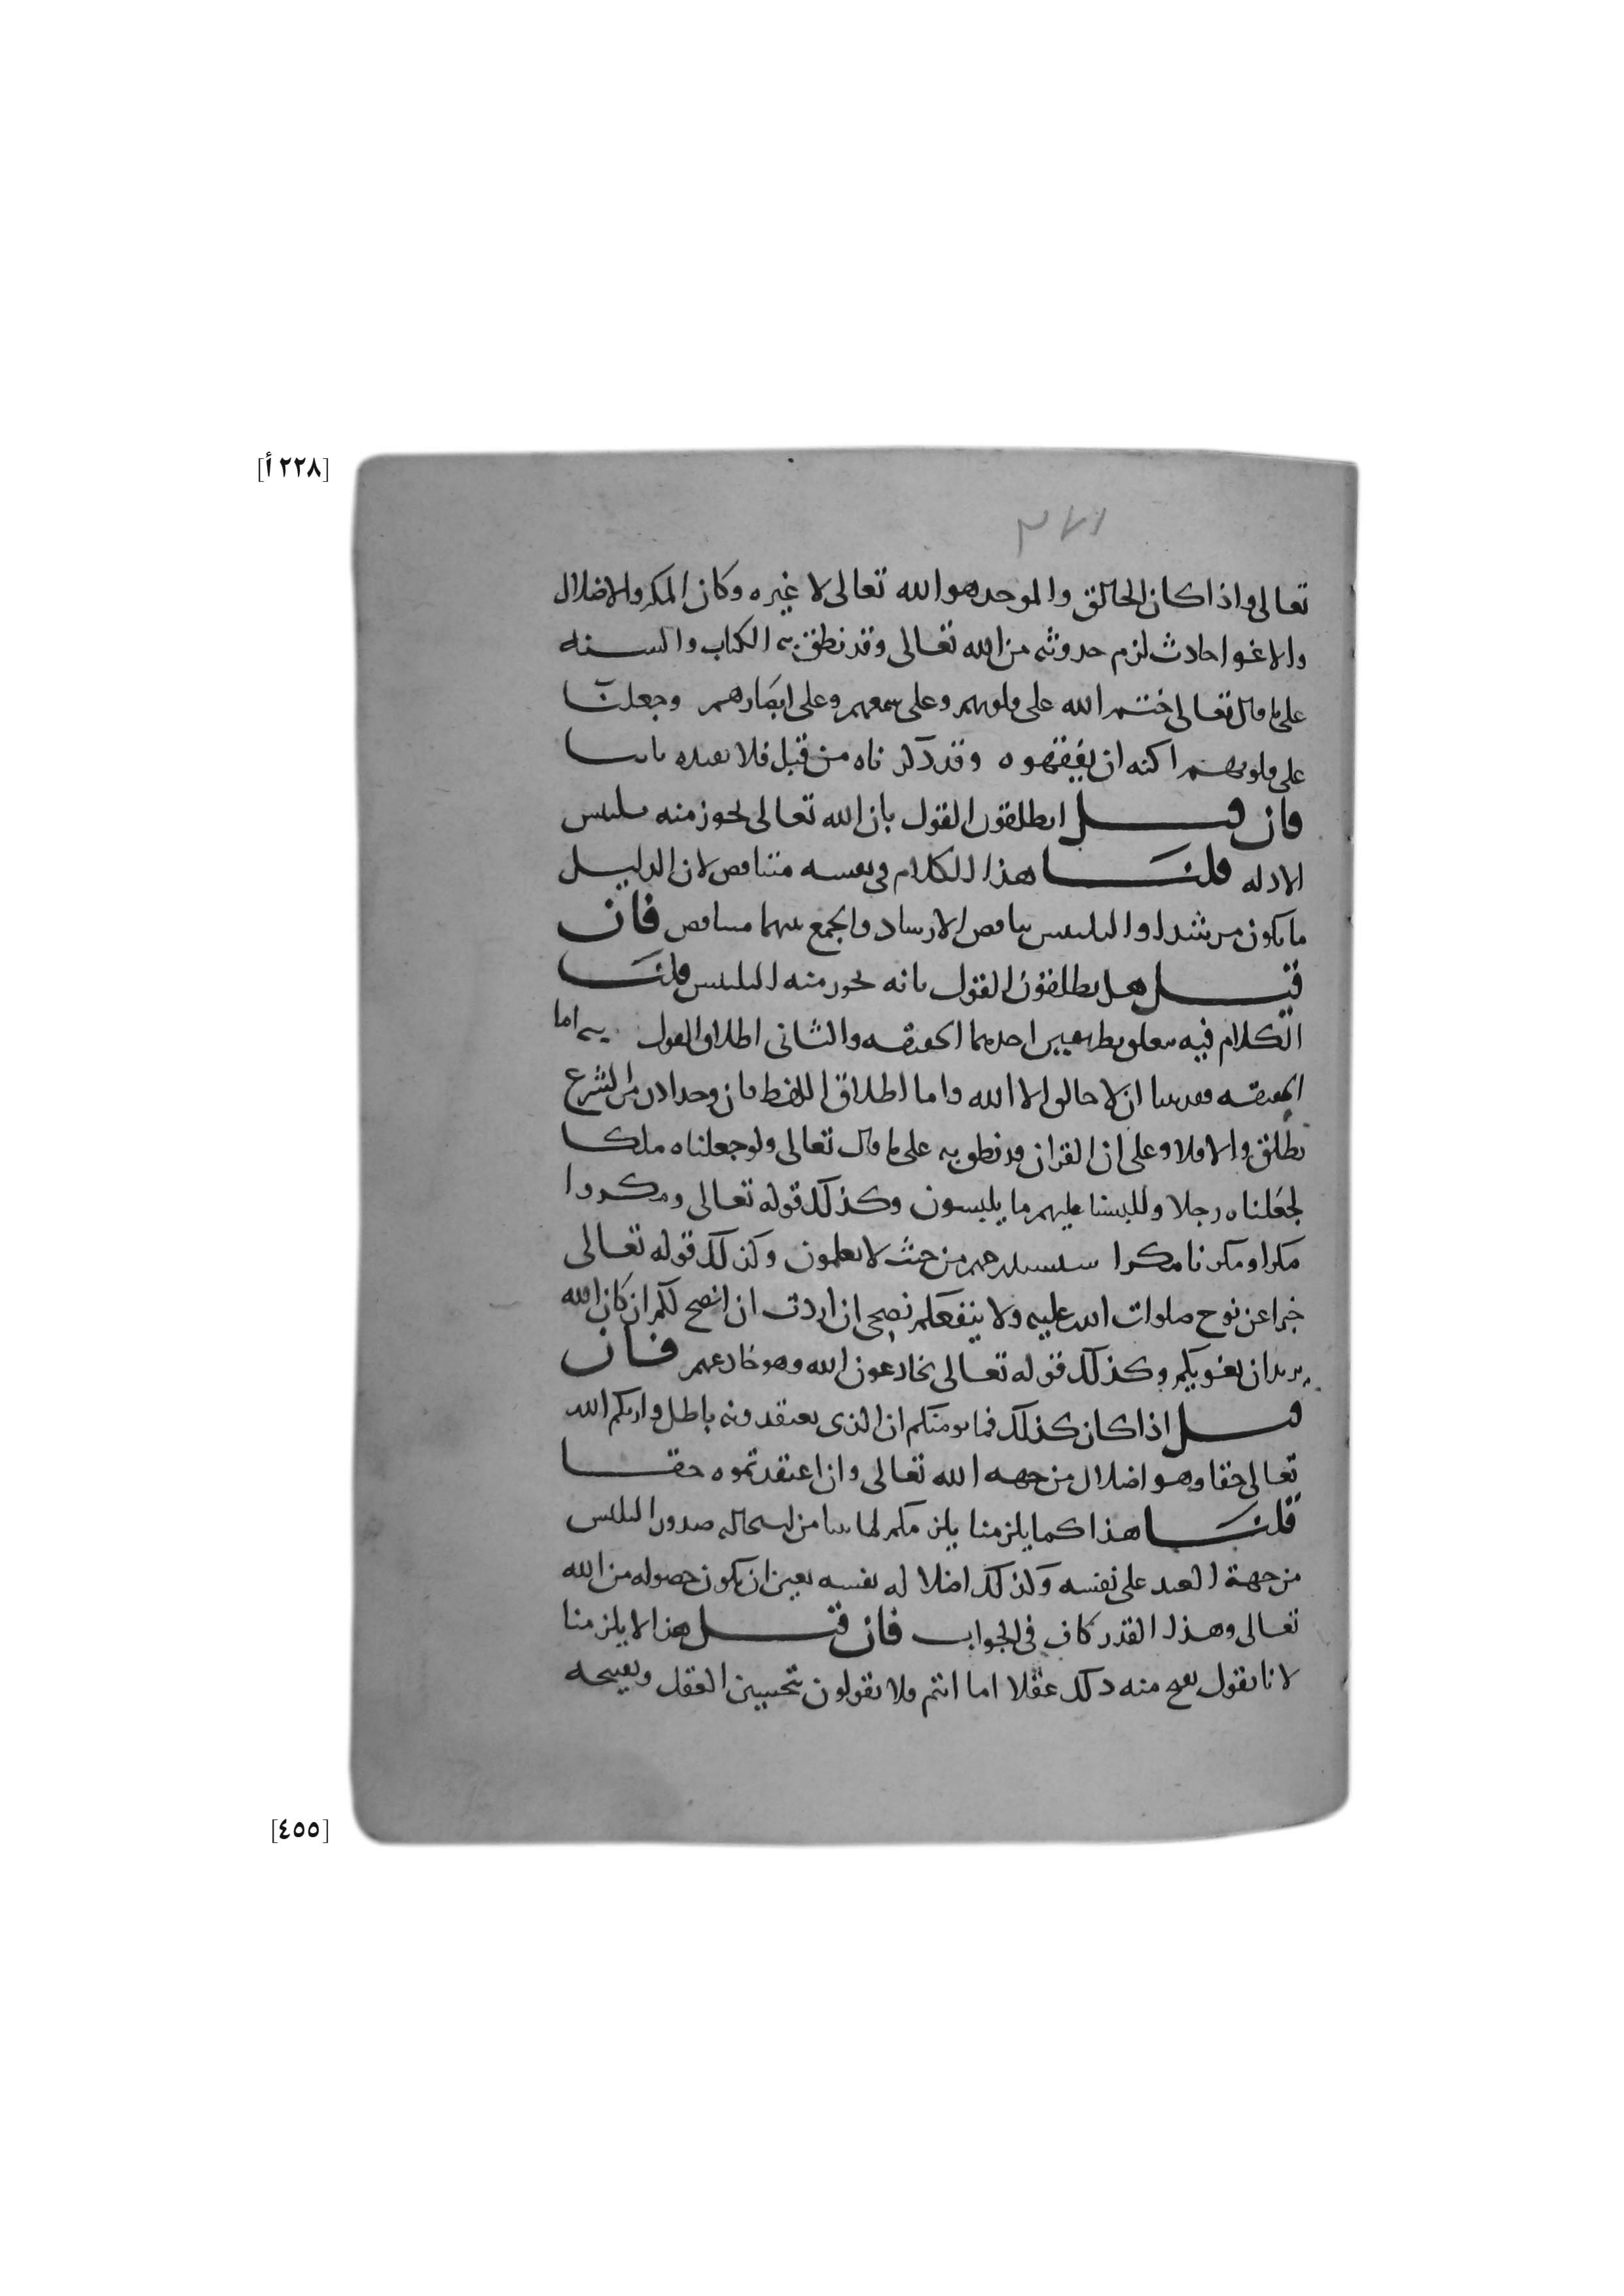 [٢٢٨ أ]
تعالى واذا كان الخالق والموجد هو الله تعالى لا غيره وكان المكر والاضلال
والاغوا حادث لزم حدوثه من الله تعالى وقد نطق به الكتاب والسنه
على ما قال تعالى ختم الله على قلوبهم وعلى سمعهم وعلى ابصارهم وجعلنا
على قلوبهم اكنه ان يفقهوه وقد ذكرناه من قبل فلا نعيده ثانيا
فان قيل اتطلقون القول بان الله تعالى يجوز منه تلبيس
الادله قلنا هذا الكلام في نفسه متناقض لان الدليل
ما يكون مرشدا والتلبيس يناقض الارشاد والجمع بينهما متناقض فان
قيل هل تطلقون القول بانه يجوز منه التلبيس قلنا
الكلام فيه يتعلق بطريقين احدهما الحقيقه والثاني اطلاق القول به اما
الحقيقه فقد بينا ان لا خالق الا الله واما اطلاق اللفظ فان وجد اذن من الشرع
نطلق والا فلا وعلى ان القران قد نطق به على ما قال تعالى ولو جعلناه ملكا
لجعلناه رجلا وللبسنا عليهم ما يلبسون وكذلك قوله تعالى ومكروا
مكرا ومكرنا مكرا سنستدرجهم من حيث لا يعلمون وكذلك قوله تعالى
خبرا عن نوح صلوات الله عليه ولا ينفعكم نصحي ان اردت ان انصح لكم ان كان الله
يريد ان يغويكم وكذلك قوله تعالى يخادعون الله وهو خادعهم فان
قيل اذا كان كذلك فما يومنكم ان الذي تعتقدونه باطل واريكم الله
تعالى حقا وهو اضلال من جهه الله تعالى وان اعتقدتموه حقا
قلنا هذا كما يلزمنا يلزمكم لما بينا من استحاله صدور التلبيس
من جهة العبد على نفسه وكذلك اضلاله نفسه تعين ان يكون حصوله من الله
تعالى وهذا القدر كاف في الجواب فان قيل هذا لا يلزمنا
لانا نقول يقبح منه ذلك عقلا اما انتم فلا تقولون بتحسين العقل وتقبيحه
[٤٥٥]